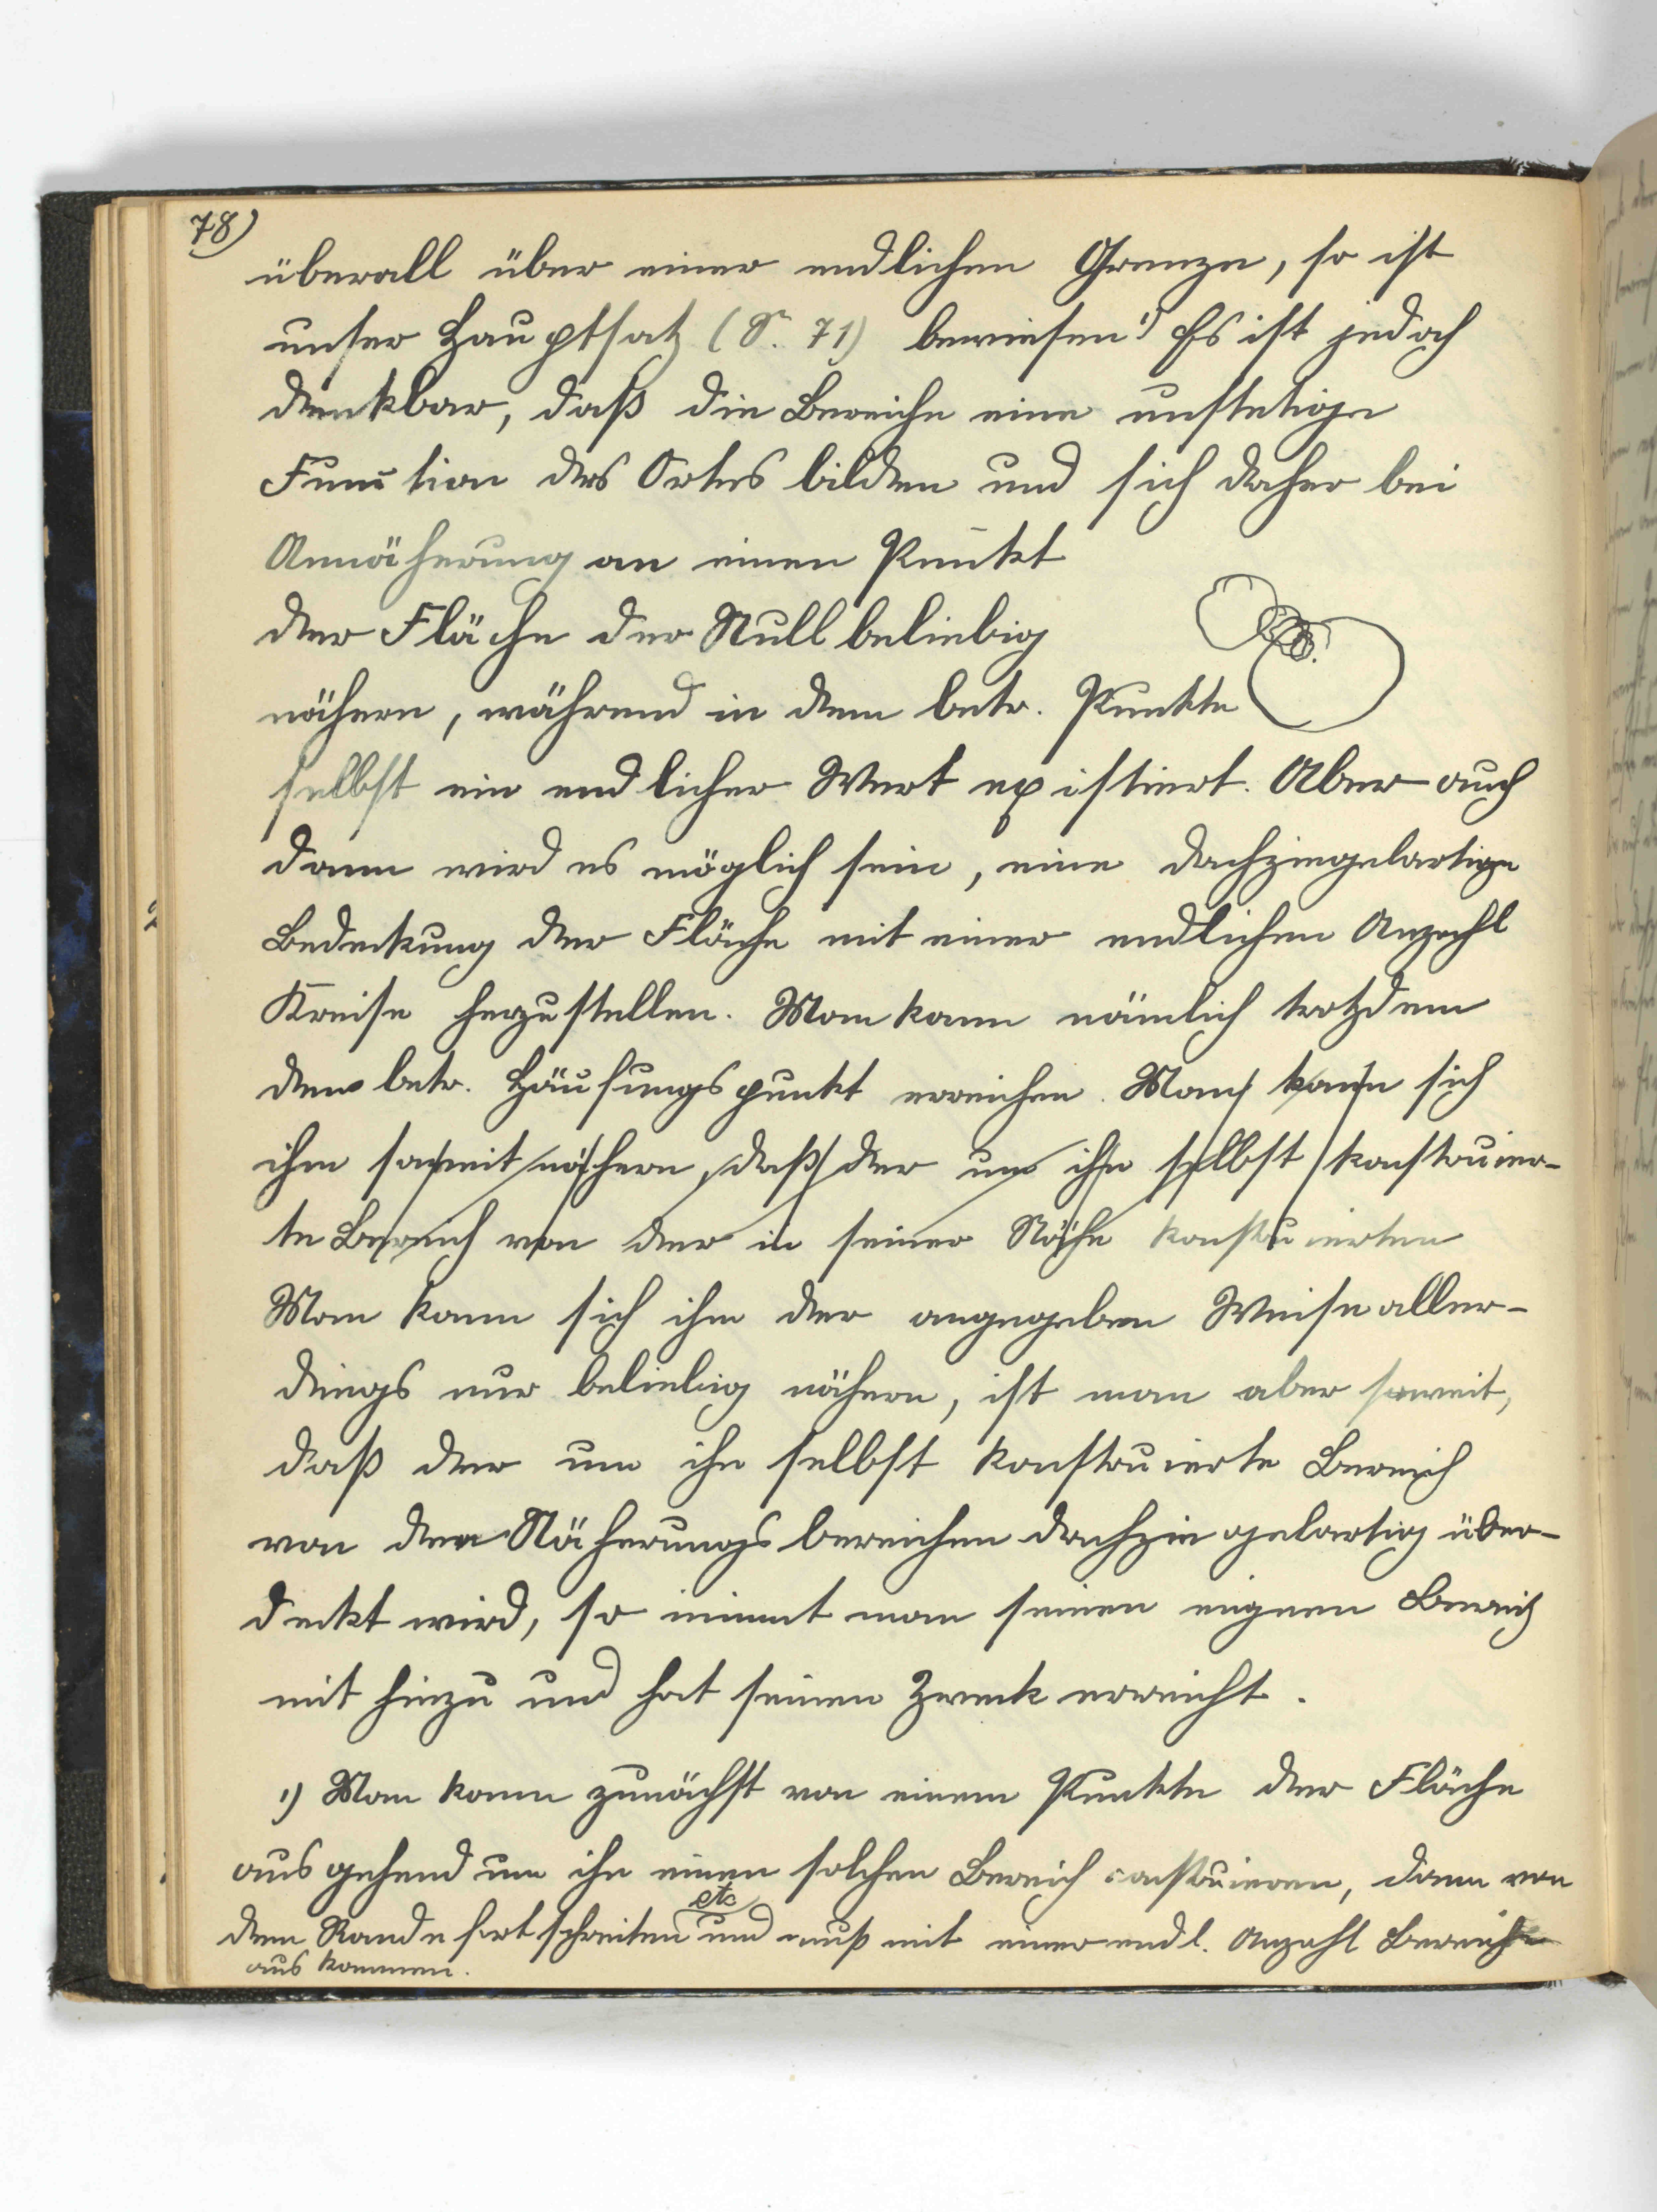 78)
überall über einer endlichen Grenze, so ist
unser Hauptsatz (S. 71) bewiesen¹⁾ Es ist jedoch
denkbar, daß die Bereiche eine unstetige
Function des Ortes bilden und sich daher bei
Annäherung an einen Punkt
der Fläche der Null beliebig
nähern, während in dem betr. Punkte
selbst ein endlicher Wert existiert. Aber auch
dann wird es möglich sein, eine dachziegelartige
Bedeckung der Fläche mit einer endlichen Anzahl
Kreise herzustellen. Man kann nämlich trotzdem
den betr. Häufungspunkt erreichen. Man kann sich
ihm soweit nähern, daß der um ihn selbst konstruier-
te Bereich von der in seiner Nähe konstruierten
Man kann sich ihm der angegeben Weise aller-
dings nur beliebig nähern, ist man aber soweit,
daß der um ihn selbst konstruierte Bereich
von den Näherungsbereichen dachziegelartig über-
deckt wird, so nimmt man seinen eignen Bereich
mit hinzu und hat seinen Zweck erreicht.
1) Man kann zunächst von einem Punkte der Fläche
ausgehend um ihn einen solchen Bereich construieren, dann von
dem Rande fortschreiten etc und muß mit einer endl. Anzahl Bereiche
auskommen.